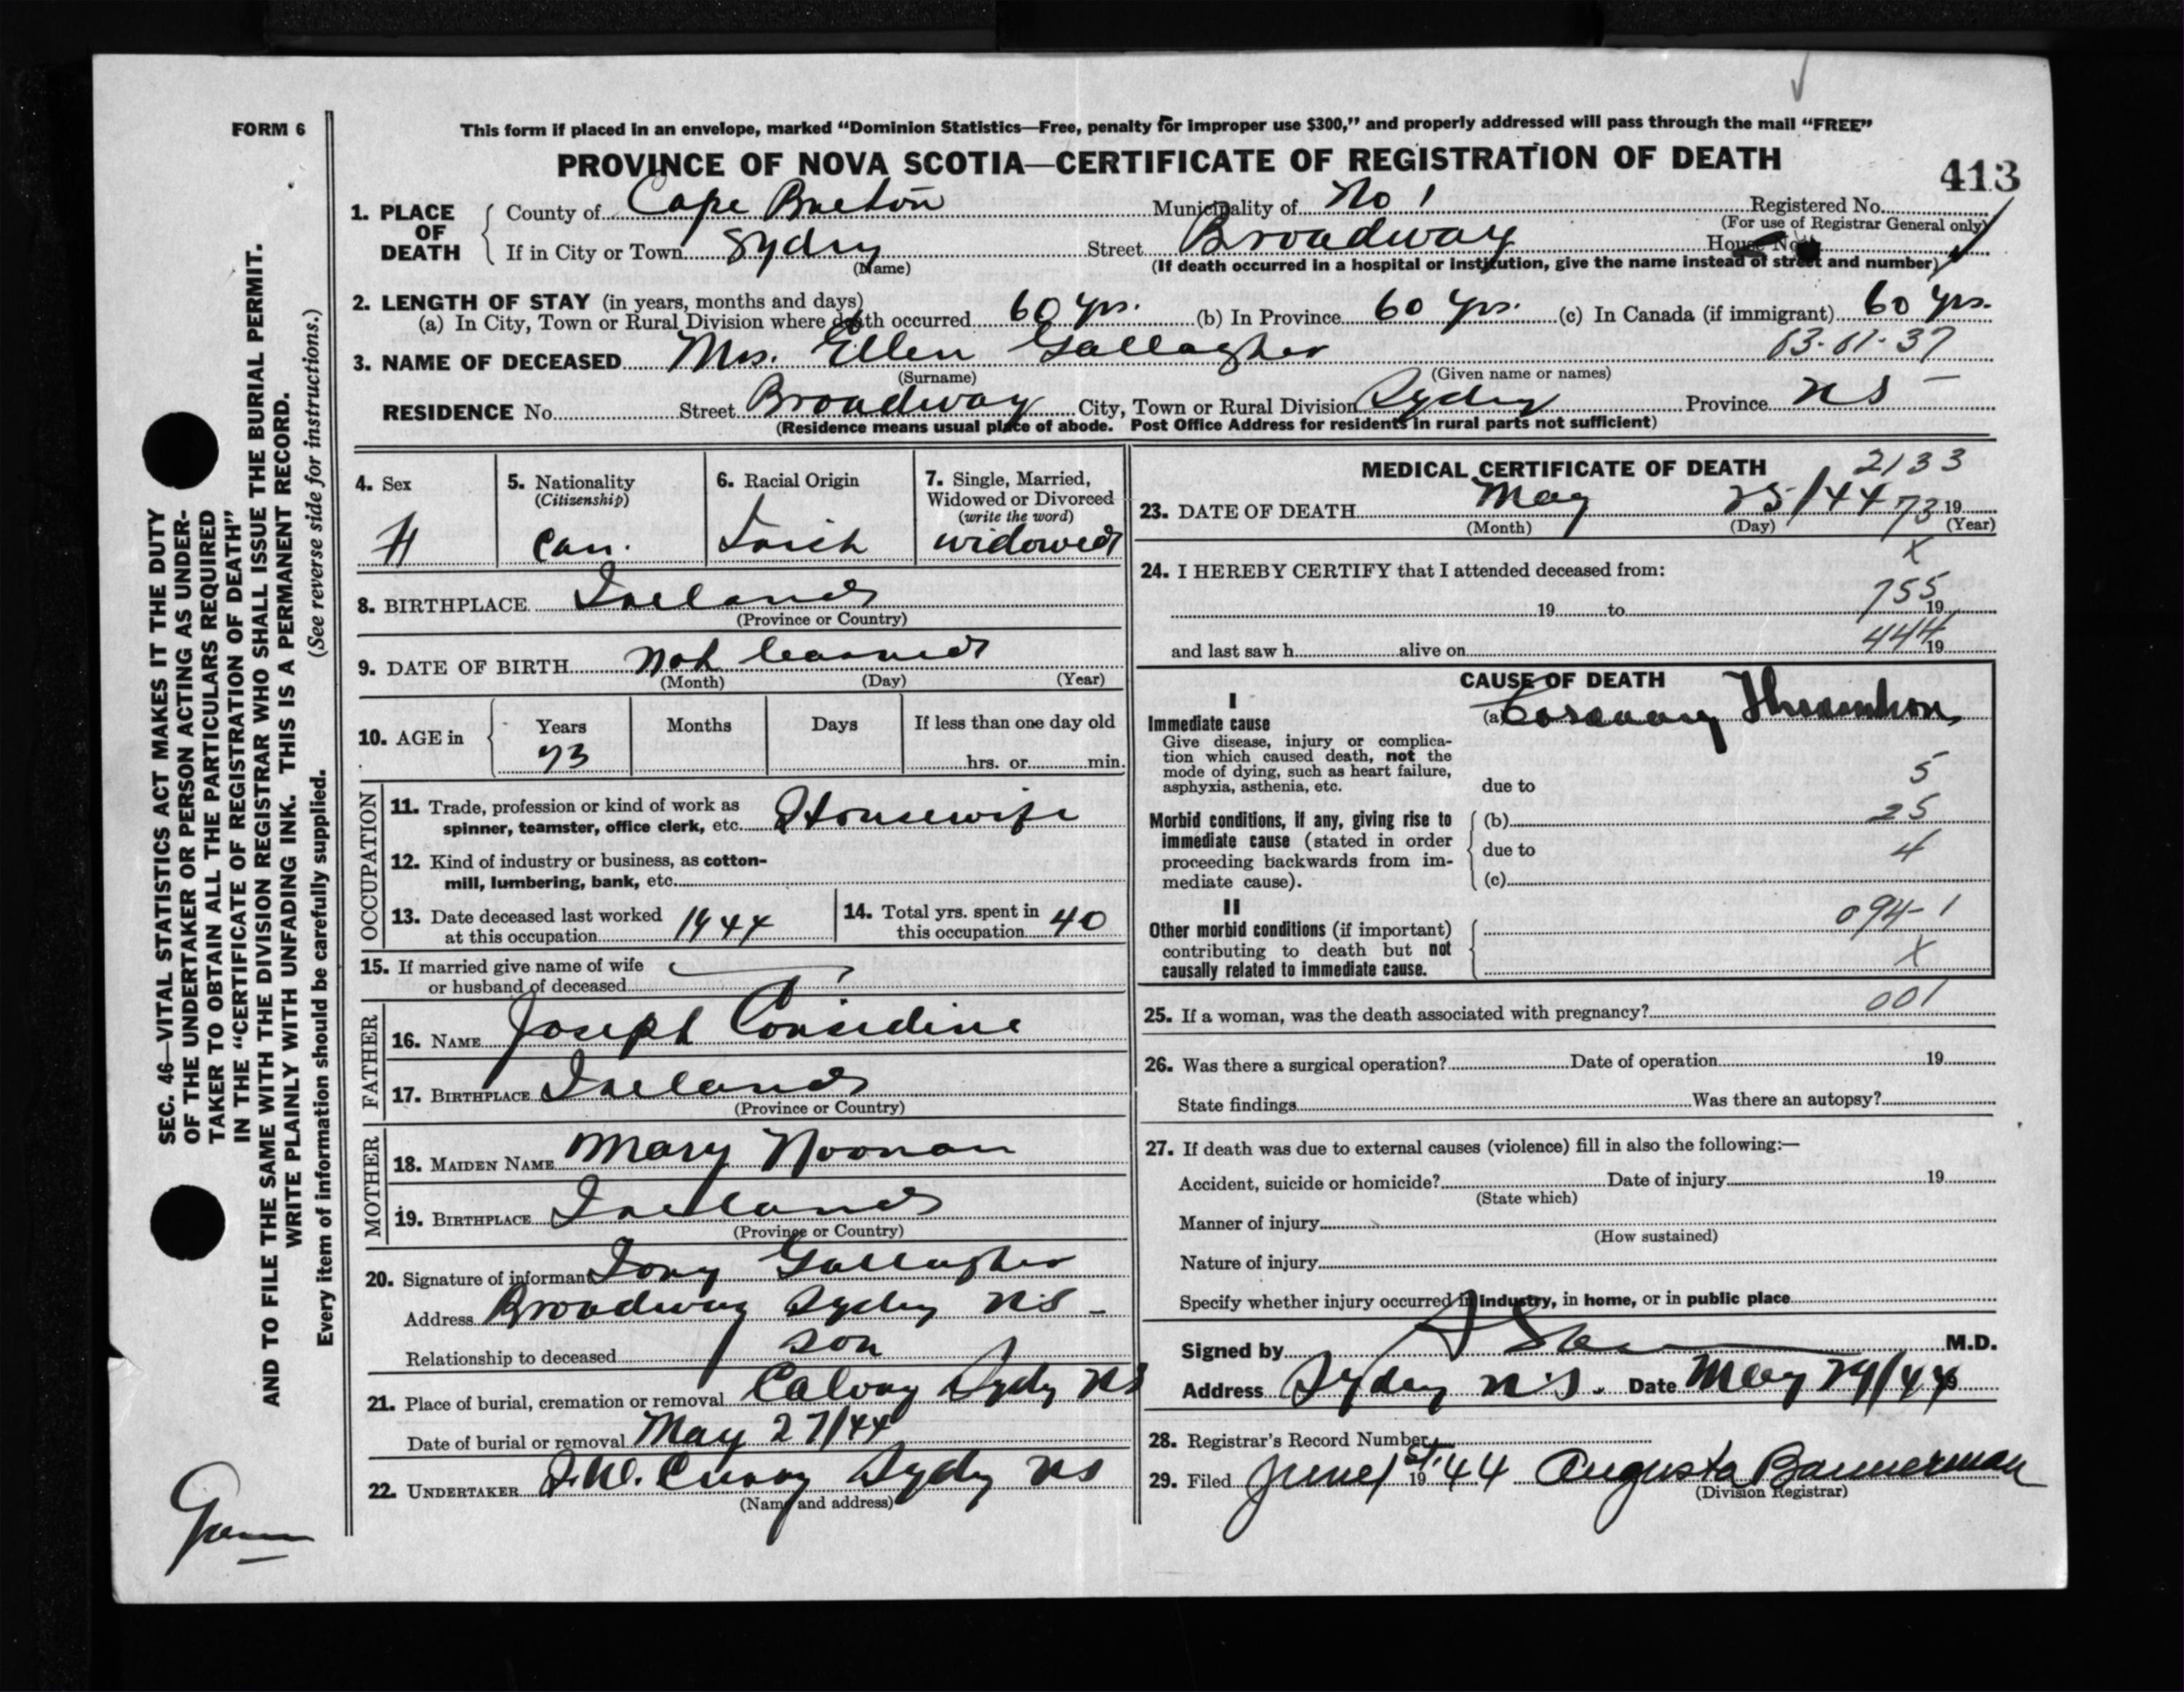 FORM 6
This form if placed in an envelope, marked “Dominion Statistics—Free, penalty for improper use $300,” and properly addressed will pass through the mail “FREE”
PROVINCE OF NOVA SCOTIA—CERTIFICATE OF REGISTRATION OF DEATH
413
1. PLACE OF DEATH
County of Cape Breton Municipality of No 1 Registered No.
(For use of Registrar General only)
If in City or Town Sydney Street Broadway House No.
(Name) (If death occurred in a hospital or institution, give the name instead of street and number)
2. LENGTH OF STAY (in years, months and days)
(a) In City, Town or Rural Division where death occurred 60 yrs. (b) In Province 60 yrs. (c) In Canada (if immigrant) 60 yrs.
3. NAME OF DECEASED Mrs. Ellen Gallagher 63-61-37
(Surname) (Given name or names)
RESIDENCE No. Street Broadway City, Town or Rural Division Sydney Province NS
(Residence means usual place of abode. Post Office Address for residents in rural parts not sufficient)
4. Sex 5. Nationality 6. Racial Origin 7. Single, Married,
(Citizenship) Widowed or Divorced
(write the word)
Can. Irish widowed
8. BIRTHPLACE Ireland
(Province or Country)
9. DATE OF BIRTH not learned
(Month) (Day) (Year)
10. AGE in Years Months Days If less than one day old
73 hrs. or min.
OCCUPATION
11. Trade, profession or kind of work as
spinner, teamster, office clerk, etc. Housewife
12. Kind of industry or business, as cotton-
mill, lumbering, bank, etc.
13. Date deceased last worked 14. Total yrs. spent in
at this occupation 1944 this occupation 40
15. If married give name of wife
or husband of deceased
FATHER
16. NAME Joseph Considine
17. BIRTHPLACE Ireland
(Province or Country)
MOTHER
18. MAIDEN NAME Mary Noonan
19. BIRTHPLACE Ireland
(Province or Country)
20. Signature of informant Tony Gallagher
Address Broadway Sydney NS
Relationship to deceased son
21. Place of burial, cremation or removal Calvary Sydney NS
Date of burial or removal May 27/44
22. UNDERTAKER Sydney NS
(Name and address)
MEDICAL CERTIFICATE OF DEATH 2133
23. DATE OF DEATH May 25/44 73 19
(Month) (Day) (Year)
X
24. I HEREBY CERTIFY that I attended deceased from:
755
19 to 19
444
and last saw h alive on 19
CAUSE OF DEATH
I
Immediate cause (a) Coronary Thrombosis
Give disease, injury or complica-
tion which caused death, not the
mode of dying, such as heart failure, 5
asphyxia, asthenia, etc. due to
Morbid conditions, if any, giving rise to (b) 25
immediate cause (stated in order due to 4
proceeding backwards from im-
mediate cause). (c)
II 094-1
Other morbid conditions (if important)
contributing to death but not X
causally related to immediate cause.
001
25. If a woman, was the death associated with pregnancy?
26. Was there a surgical operation? Date of operation 19
State findings Was there an autopsy?
27. If death was due to external causes (violence) fill in also the following:—
Accident, suicide or homicide? Date of injury 19
(State which)
Manner of injury
(How sustained)
Nature of injury
Specify whether injury occurred in industry, in home, or in public place
Signed by M.D.
Address Sydney N.S. Date May 29/44
28. Registrar's Record Number
29. Filed June 1st. 1944 Augusta Bannerman
(Division Registrar)
SEC. 46—VITAL STATISTICS ACT MAKES IT THE DUTY
OF THE UNDERTAKER OR PERSON ACTING AS UNDER-
TAKER TO OBTAIN ALL THE PARTICULARS REQUIRED
IN THE “CERTIFICATE OF REGISTRATION OF DEATH”
AND TO FILE THE SAME WITH THE DIVISION REGISTRAR WHO SHALL ISSUE THE BURIAL PERMIT.
WRITE PLAINLY WITH UNFADING INK. THIS IS A PERMANENT RECORD.
Every item of information should be carefully supplied. (See reverse side for instructions.)